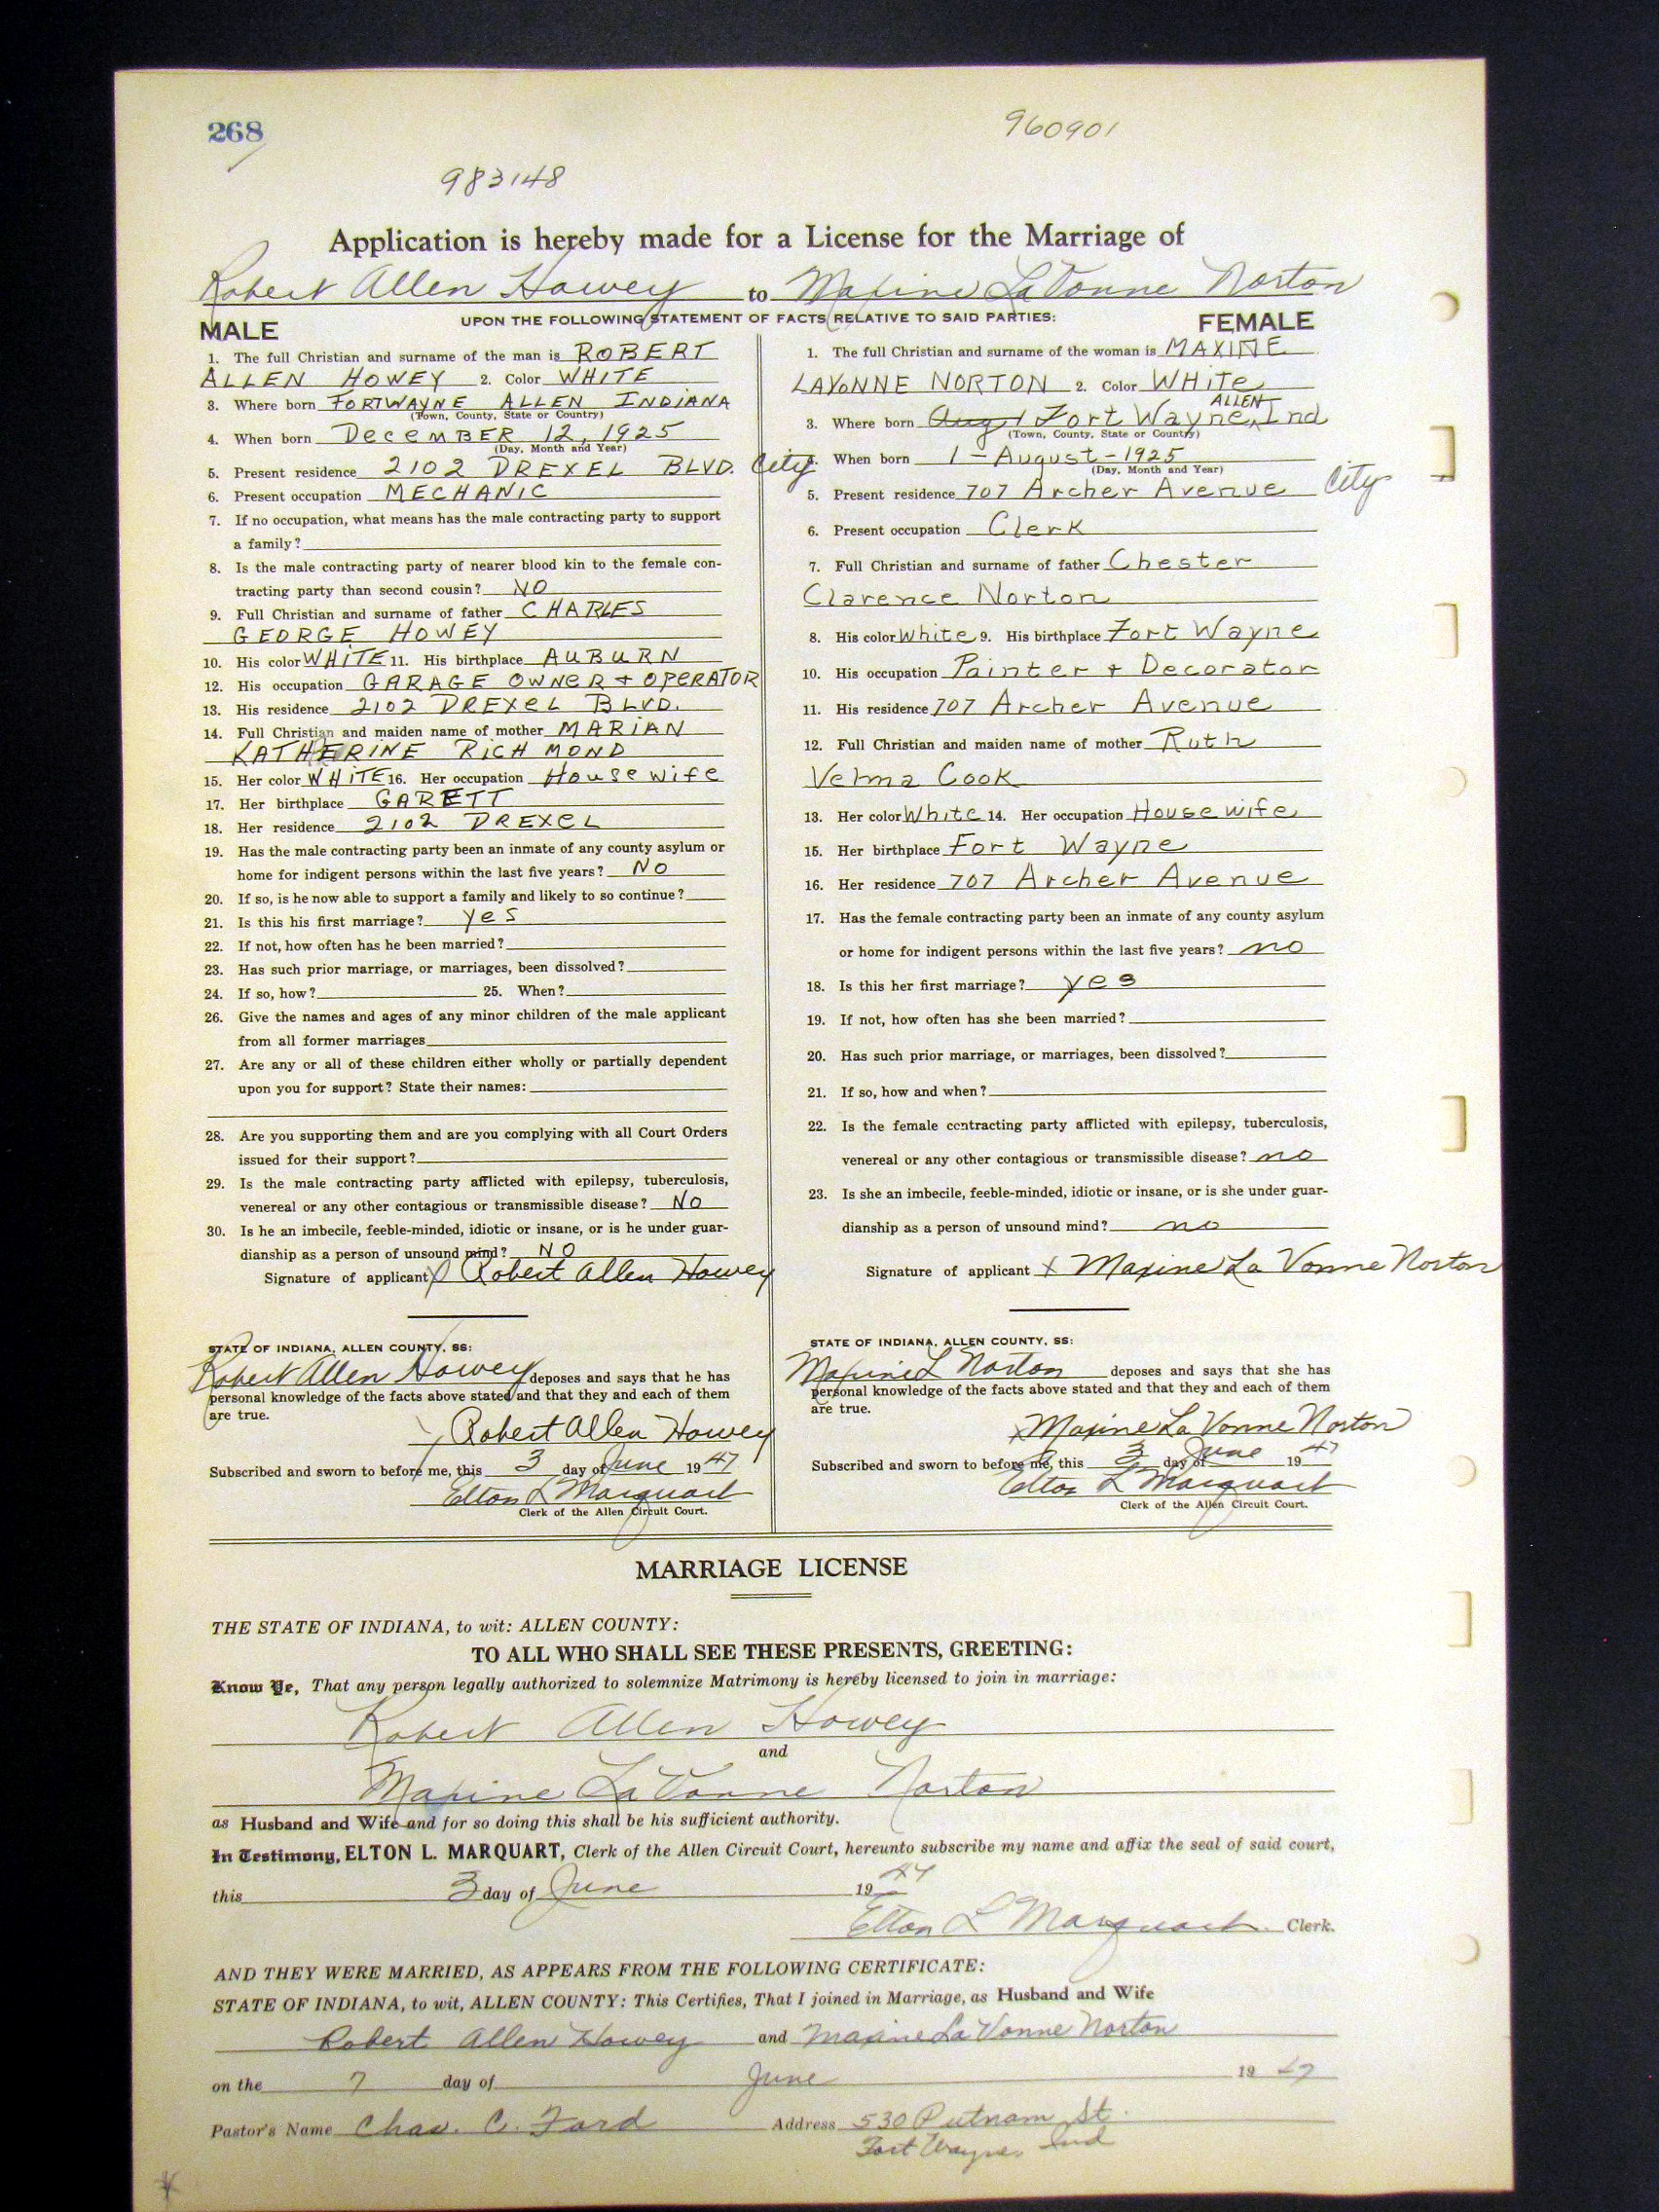 268
960901
983148
Application is hereby made for a License for the Marriage of
Robert Allen Howey to Maxine LaVonne Norton
UPON THE FOLLOWING STATEMENT OF FACTS RELATIVE TO SAID PARTIES:
MALE
1. The full Christian and surname of the man is ROBERT
ALLEN HOWEY 2. Color WHITE
3. Where born FORTWAYNE ALLEN INDIANA
(Town, County, State or Country)
4. When born DECEMBER 12, 1925
(Day, Month and Year)
5. Present residence 2102 DREXEL BLVD. City
6. Present occupation MECHANIC
7. If no occupation, what means has the male contracting party to support
a family?
8. Is the male contracting party of nearer blood kin to the female con-
tracting party than second cousin? NO
9. Full Christian and surname of father CHARLES
GEORGE HOWEY
10. His color WHITE 11. His birthplace AUBURN
12. His occupation GARAGE OWNER + OPERATOR
13. His residence 2102 DREXEL BLVD.
14. Full Christian and maiden name of mother MARIAN
KATHERINE RICHMOND
15. Her color WHITE 16. Her occupation Housewife
17. Her birthplace GARETT
18. Her residence 2102 DREXEL
19. Has the male contracting party been an inmate of any county asylum or
home for indigent persons within the last five years? NO
20. If so, is he now able to support a family and likely to so continue?
21. Is this his first marriage? yes
22. If not, how often has he been married?
23. Has such prior marriage, or marriages, been dissolved?
24. If so, how? 25. When?
26. Give the names and ages of any minor children of the male applicant
from all former marriages
27. Are any or all of these children either wholly or partially dependent
upon you for support? State their names:
28. Are you supporting them and are you complying with all Court Orders
issued for their support?
29. Is the male contracting party afflicted with epilepsy, tuberculosis,
venereal or any other contagious or transmissible disease? NO
30. Is he an imbecile, feeble-minded, idiotic or insane, or is he under guar-
dianship as a person of unsound mind? NO
Signature of applicant X Robert Allen Howey
STATE OF INDIANA, ALLEN COUNTY, SS:
Robert Allen Howey deposes and says that he has
personal knowledge of the facts above stated and that they and each of them
are true.
X Robert Allen Howey
Subscribed and sworn to before me, this 3 day of June 1947
Elton L Marquart
Clerk of the Allen Circuit Court.
FEMALE
1. The full Christian and surname of the woman is MAXINE
LAVONNE NORTON 2. Color WHITE
ALLEN
3. Where born Aug 1 Fort Wayne, Ind
(Town, County, State or Country)
4. When born 1-August-1925
(Day, Month and Year)
5. Present residence 707 Archer Avenue City
6. Present occupation Clerk
7. Full Christian and surname of father Chester
Clarence Norton
8. His color White 9. His birthplace Fort Wayne
10. His occupation Painter + Decorator
11. His residence 707 Archer Avenue
12. Full Christian and maiden name of mother Ruth
Velma Cook
13. Her color White 14. Her occupation Housewife
15. Her birthplace Fort Wayne
16. Her residence 707 Archer Avenue
17. Has the female contracting party been an inmate of any county asylum
or home for indigent persons within the last five years? no
18. Is this her first marriage? yes
19. If not, how often has she been married?
20. Has such prior marriage, or marriages, been dissolved?
21. If so, how and when?
22. Is the female contracting party afflicted with epilepsy, tuberculosis,
venereal or any other contagious or transmissible disease? no
23. Is she an imbecile, feeble-minded, idiotic or insane, or is she under guar-
dianship as a person of unsound mind? no
Signature of applicant X Maxine La Vonne Norton
STATE OF INDIANA, ALLEN COUNTY, SS:
Maxine L Norton deposes and says that she has
personal knowledge of the facts above stated and that they and each of them
are true.
X Maxine La Vonne Norton
Subscribed and sworn to before me, this 3 day of June 1947
Elton L Marquart
Clerk of the Allen Circuit Court.
MARRIAGE LICENSE
THE STATE OF INDIANA, to wit: ALLEN COUNTY:
TO ALL WHO SHALL SEE THESE PRESENTS, GREETING:
Know Ye, That any person legally authorized to solemnize Matrimony is hereby licensed to join in marriage:
Robert Allen Howey
and
Maxine LaVonne Norton
as Husband and Wife and for so doing this shall be his sufficient authority.
In Testimony, ELTON L. MARQUART, Clerk of the Allen Circuit Court, hereunto subscribe my name and affix the seal of said court,
this 3 day of June 1947
Elton L Marquart Clerk.
AND THEY WERE MARRIED, AS APPEARS FROM THE FOLLOWING CERTIFICATE:
STATE OF INDIANA, to wit, ALLEN COUNTY: This Certifies, That I joined in Marriage, as Husband and Wife
Robert Allen Howey and Maxine La Vonne Norton
on the 7 day of June 1947
Pastor's Name Chas. C. Ford Address 530 Putnam St.
Fort Wayne, Ind